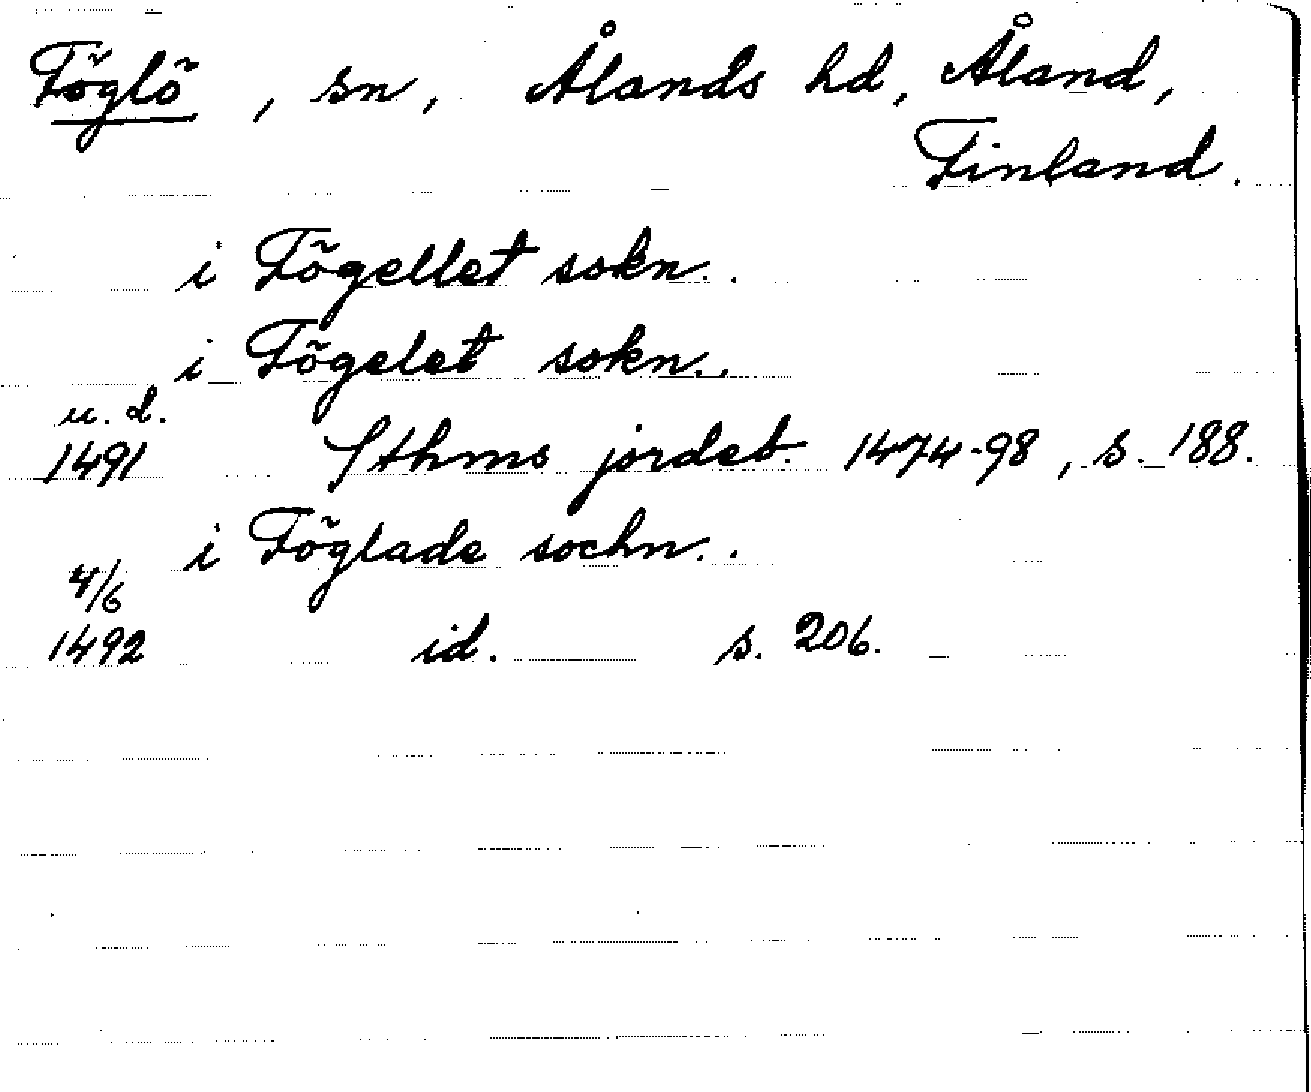 Föglö, sn, Ålands hd, Åland,
Finland.
i Fögellet sokn..
i Fögelet sokn..
u. d.
1491 Sthms jordeb. 1474-98, s. 188.
i Föglade sochn..
4/6
1492 id. s. 206.